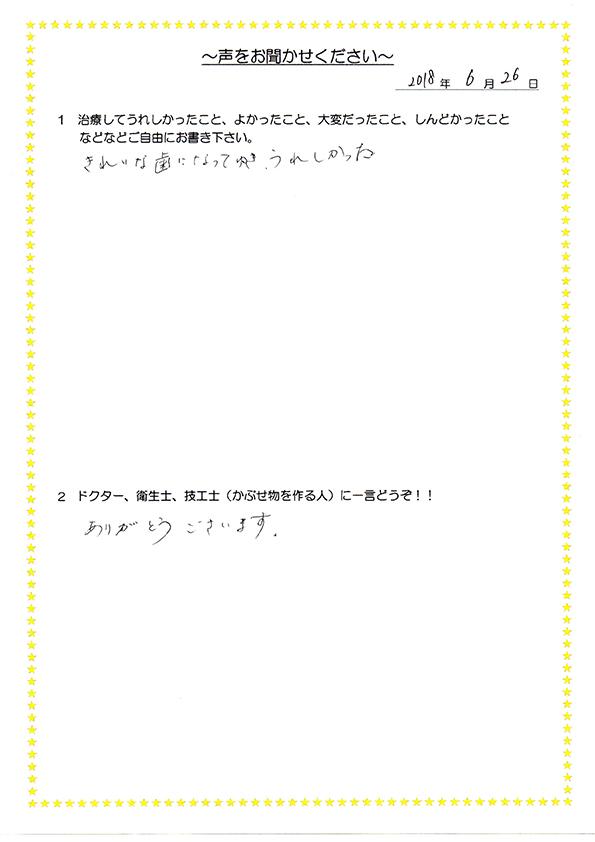 ～声をお聞かせください～
2018年 6月26日
1 治療してうれしかったこと、よかったこと、大変だったこと、しんどかったこと
などなどご自由にお書き下さい。
きれいな歯になってゆき、うれしかった
2 ドクター、衛生士、技工士（かぶせ物を作る人）に一言どうぞ！！
ありがとうございます。